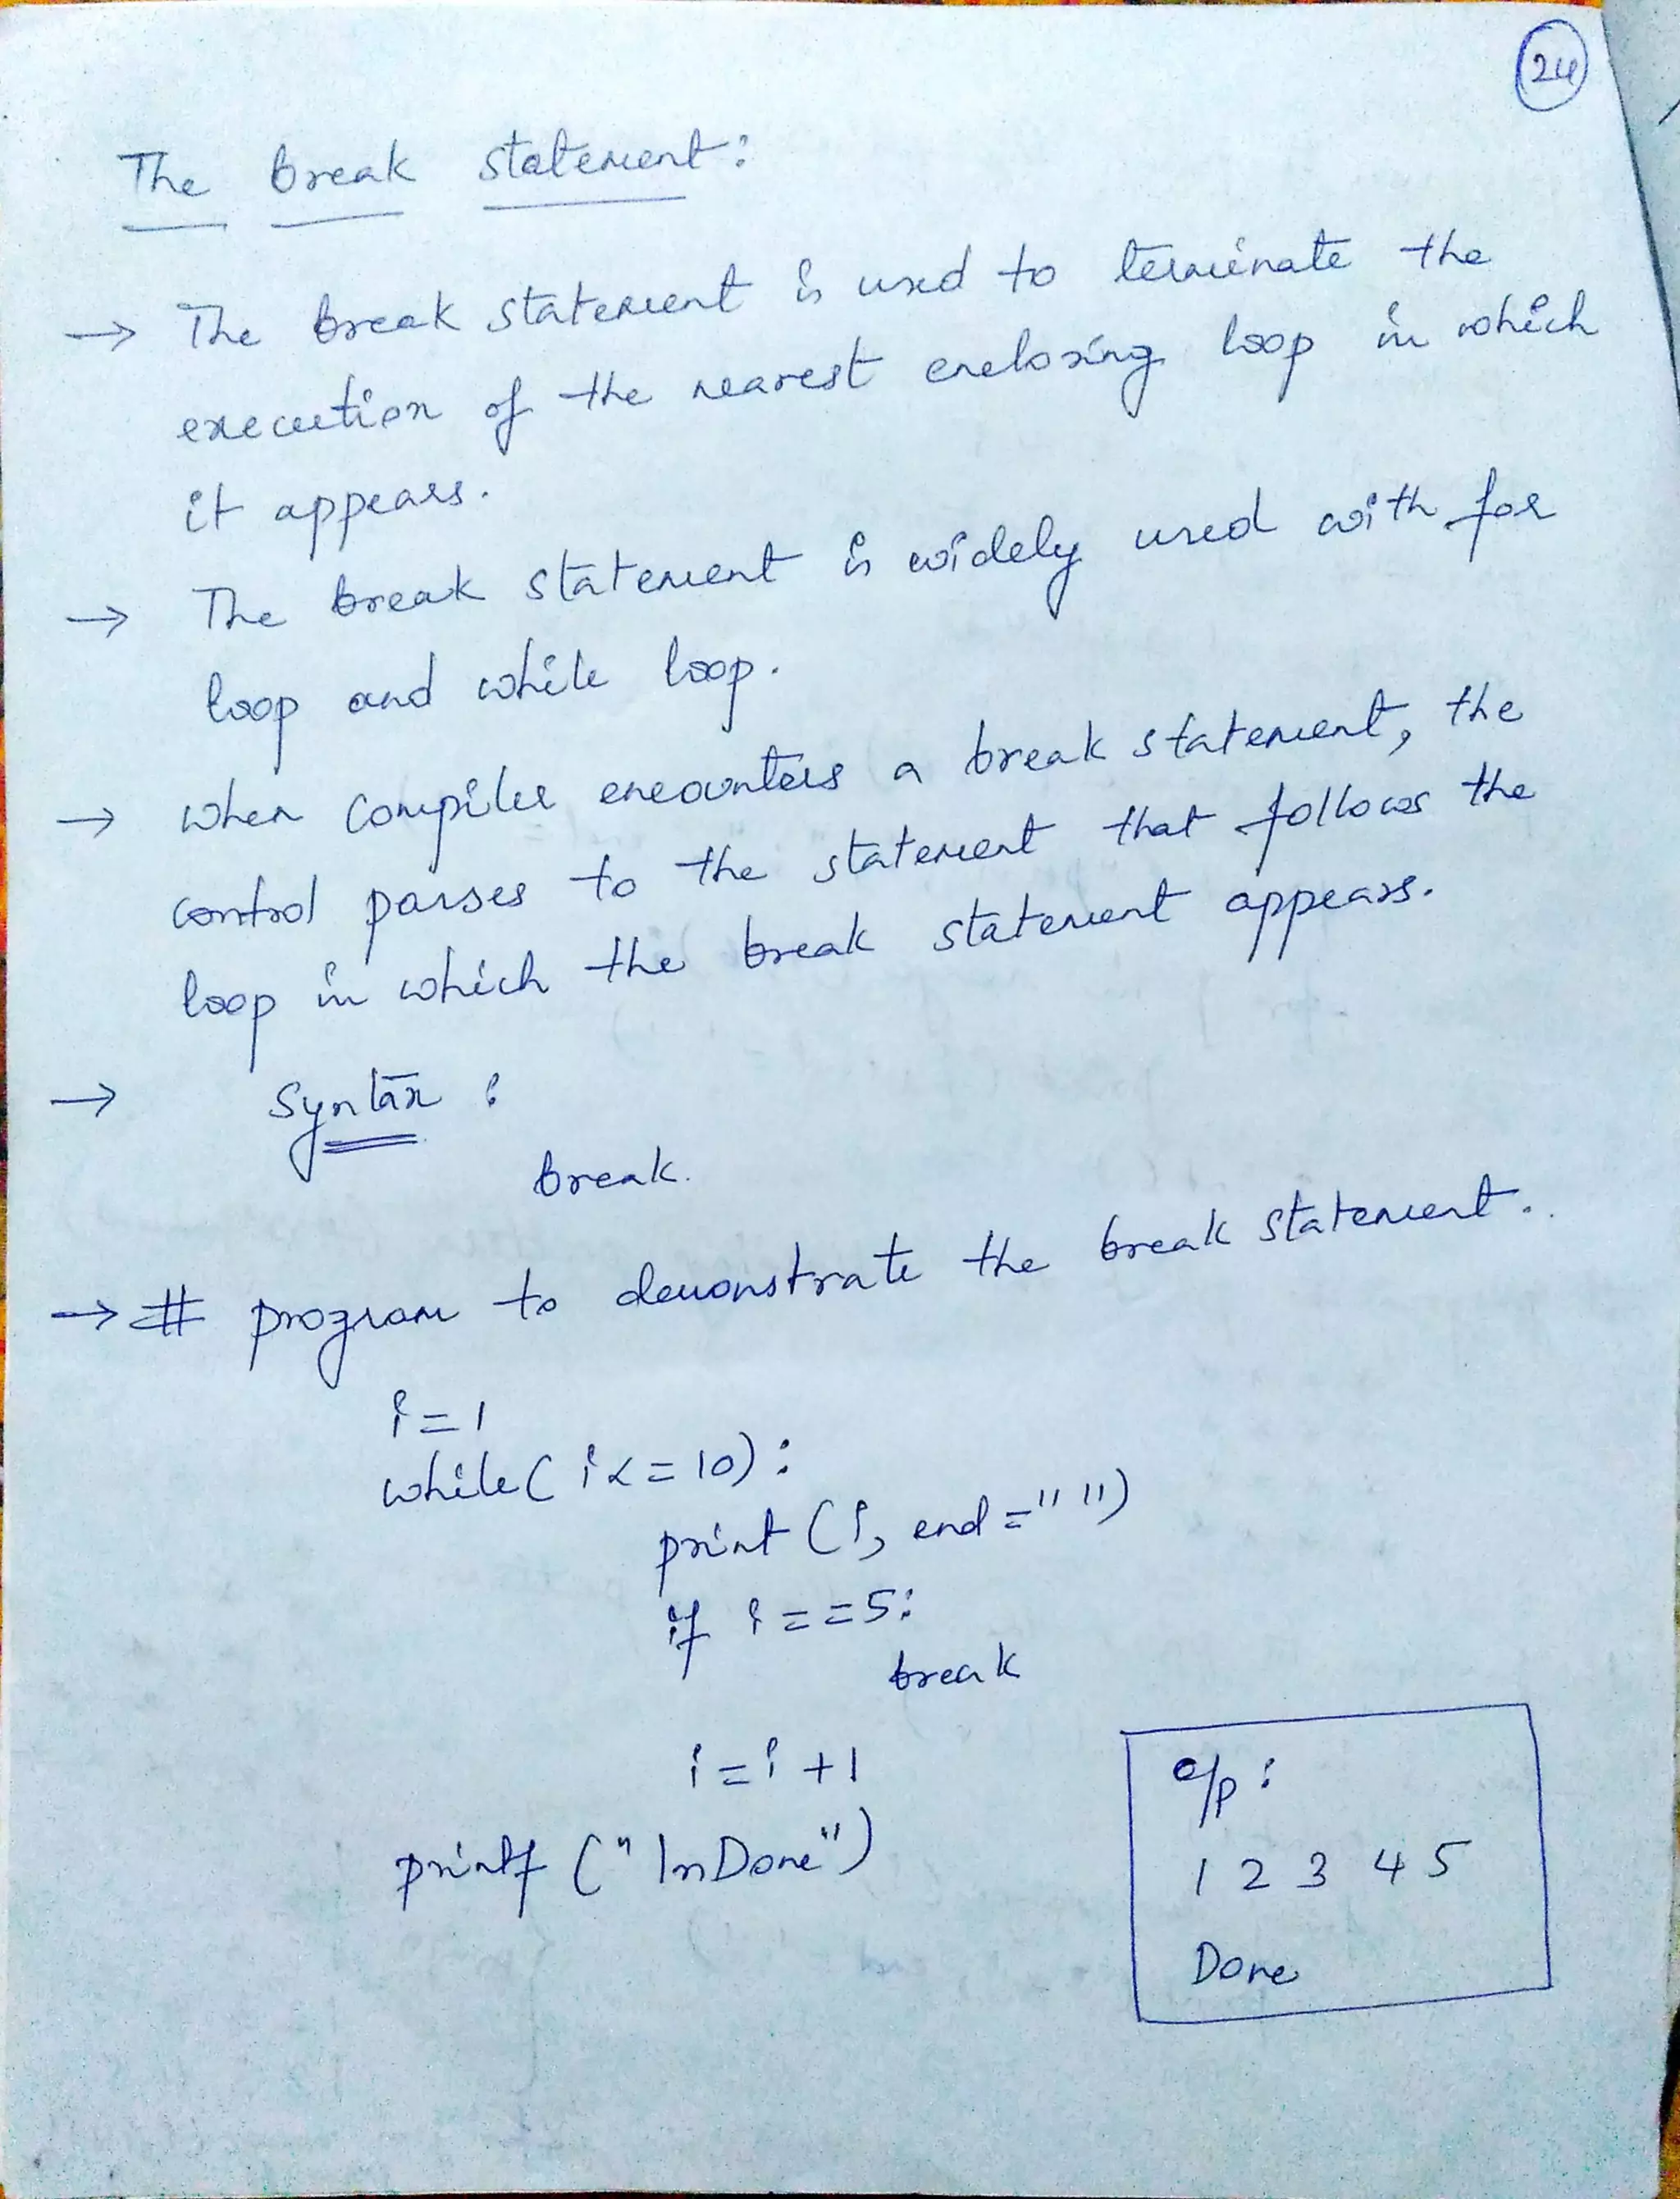 24
The break statement:
→ The break statement is used to terminate the
execution of the nearest enclosing loop in which
it appears.
→ The break statement is widely used with for
loop and while loop.
→ when compiler encounters a break statement, the
control passes to the statement that follows the
loop in which the break statement appears.
→ Syntax :
break.
→ # program to demonstrate the break statement.
i=1
while( i<=10):
print (i, end=" ")
if i==5:
break
i=i+1
printf ("\nDone")
o/p :
1 2 3 4 5
Done